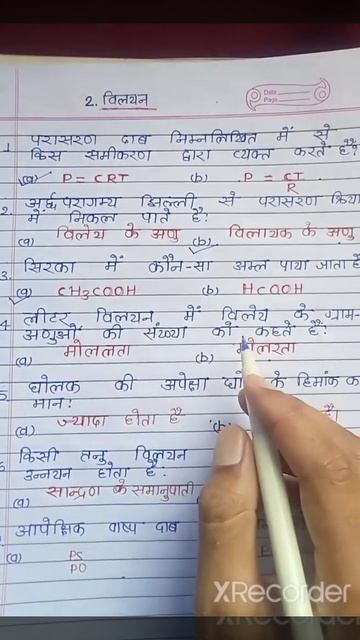 2. विलयन
Date
Page
1. परासरण दाब निम्नलिखित में से
किस समीकरण द्वारा व्यक्त करते है?
(a) P = CRT (b) P = CT/R
2. अर्द्धपरागम्य झिल्ली से परासरण क्रिया
में निकल पाते है?
(a) विलेय के अणु (b) विलायक के अणु
3. सिरका में कौन-सा अम्ल पाया जाता है
(a) CH3COOH (b) HCOOH
4 लीटर विलयन में विलेय के ग्राम-
अणुओं की संख्या को कहते है?
(a) मोललता (b) मोलरता
5 घोलक की अपेक्षा के हिमांक क
मान:
(a) ज्यादा होता है (b)
किसी तनु विलयन
उन्नयन होता है:
(a) सान्द्रण के समानुपाती
आपेक्षिक वाष्प दाब
(a) PS
PO
XRecorder
XRecorder